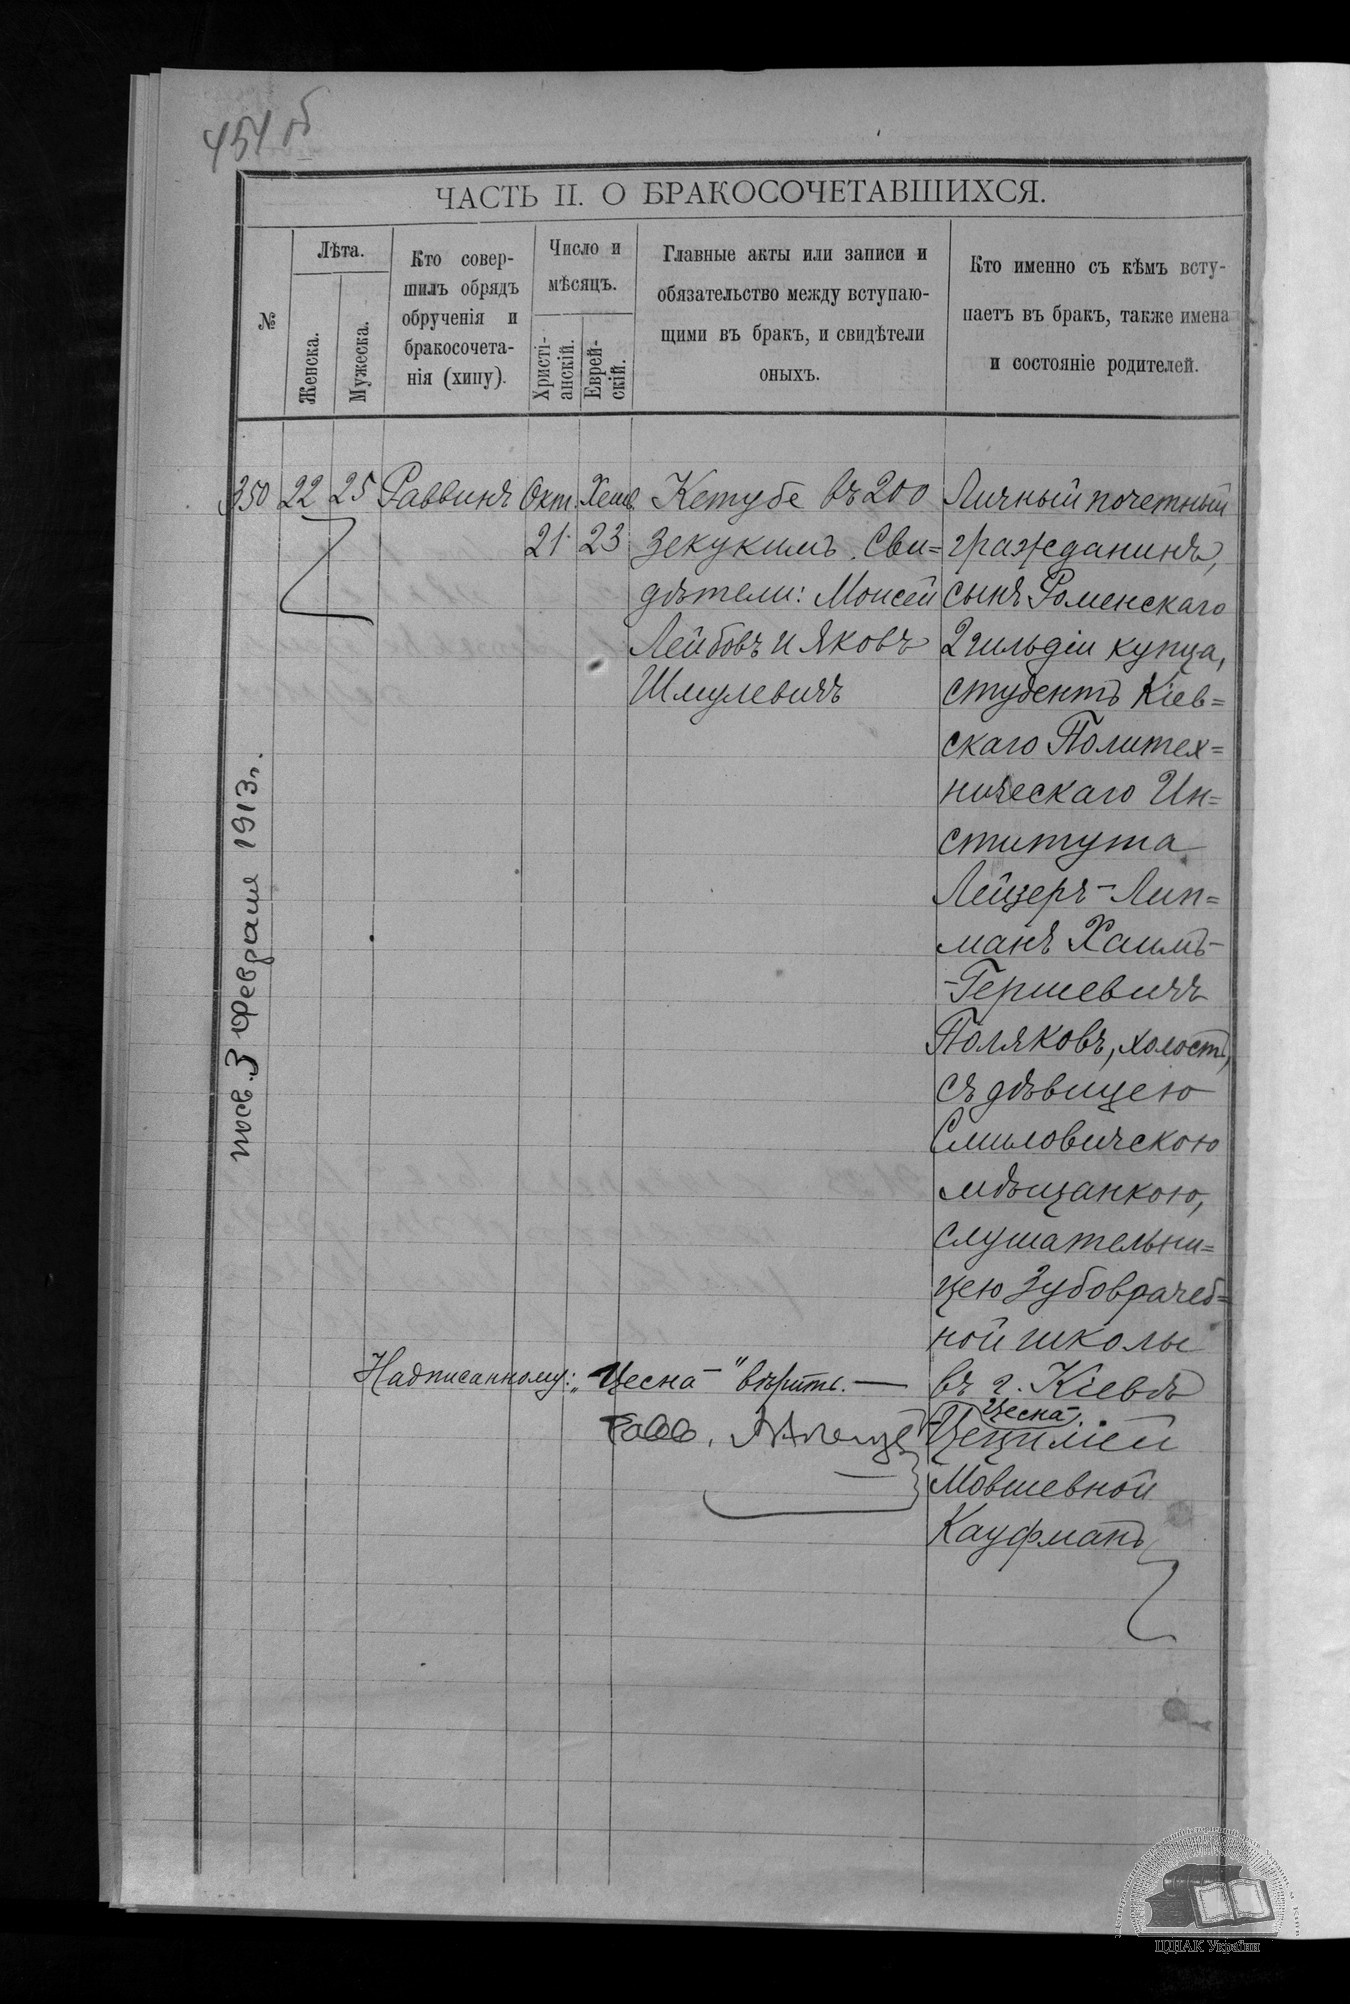 454 об
ЧАСТЬ II. О БРАКОСОЧЕТАВШИХСЯ.
№
Лѣта.
Женска.
Мужеска.
Кто совер-
шилъ обрядъ
обрученія и
бракосочета-
нія (хипу).
Число и
мѣсяцъ.
Христі-
анскій.
Еврей-
скій.
Главные акты или записи и
обязательство между вступаю-
щими въ бракъ, и свидѣтели
оныхъ.
Кто именно съ кѣмъ всту-
паетъ въ бракъ, также имена
и состояніе родителей.
350 22 25 Раввинъ Окт. Хешв.
21 23
Кетубе въ 200
зекукимъ. Сви=
дѣтели: Моисей
Лейбовъ и Яковъ
Шмулевичъ
Личный почетный
гражданинъ,
сынъ Роменскаго
2 гильдіи купца,
студентъ Кіев=
скаго Политех=
ническаго Ин=
ститута
Лейзеръ-Лип=
манъ Хаимъ-
-Гершевичъ
Поляковъ, холостъ,
съ дѣвицею
Смиловичскою
мѣщанкою,
слушательни=
цею Зубоврачеб=
ной школы
въ г. Кіевѣ
Цесна-
-Цецилией
Мовшевной
Кауфманъ
Надписанному: „Цесна-" вѣрить. —
Равв.
3 февраля 1913 г.
ЦДІАК України